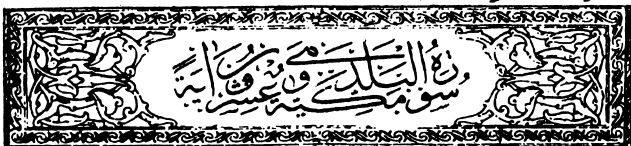 سورة البلد مكية وهي عشرون آية